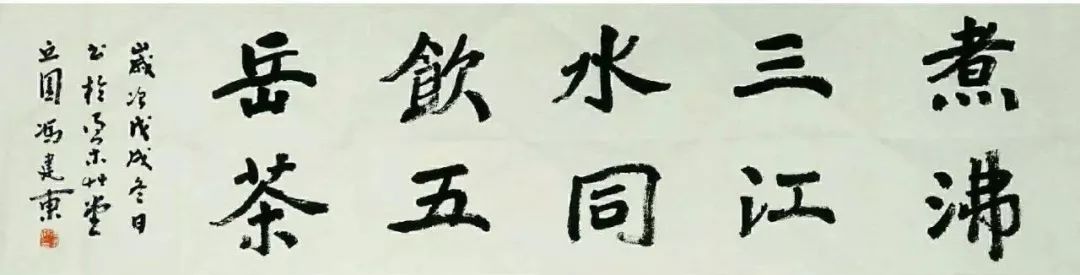 煮沸
三江
水同
飲五
岳茶
歲次戊戌冬日
書於艸堂
圓 馮建東